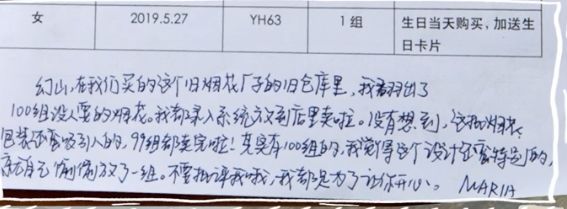 女 2019.5.27 YH63 1组 生日当天购买，加送生
日卡片
幻山，在我们买的这个旧烟花厂子的旧仓库里，我翻出了
100组没人要的烟花。我都录入系统放到店里卖啦。没有想到，这批烟花
包装还蛮吸引人的，99组都卖完啦！其实有100组的，我觉得这个设计还蛮特别的，
就自己偷偷放了一组。不要批评我哦，我都是为了让你开心。 MARIA